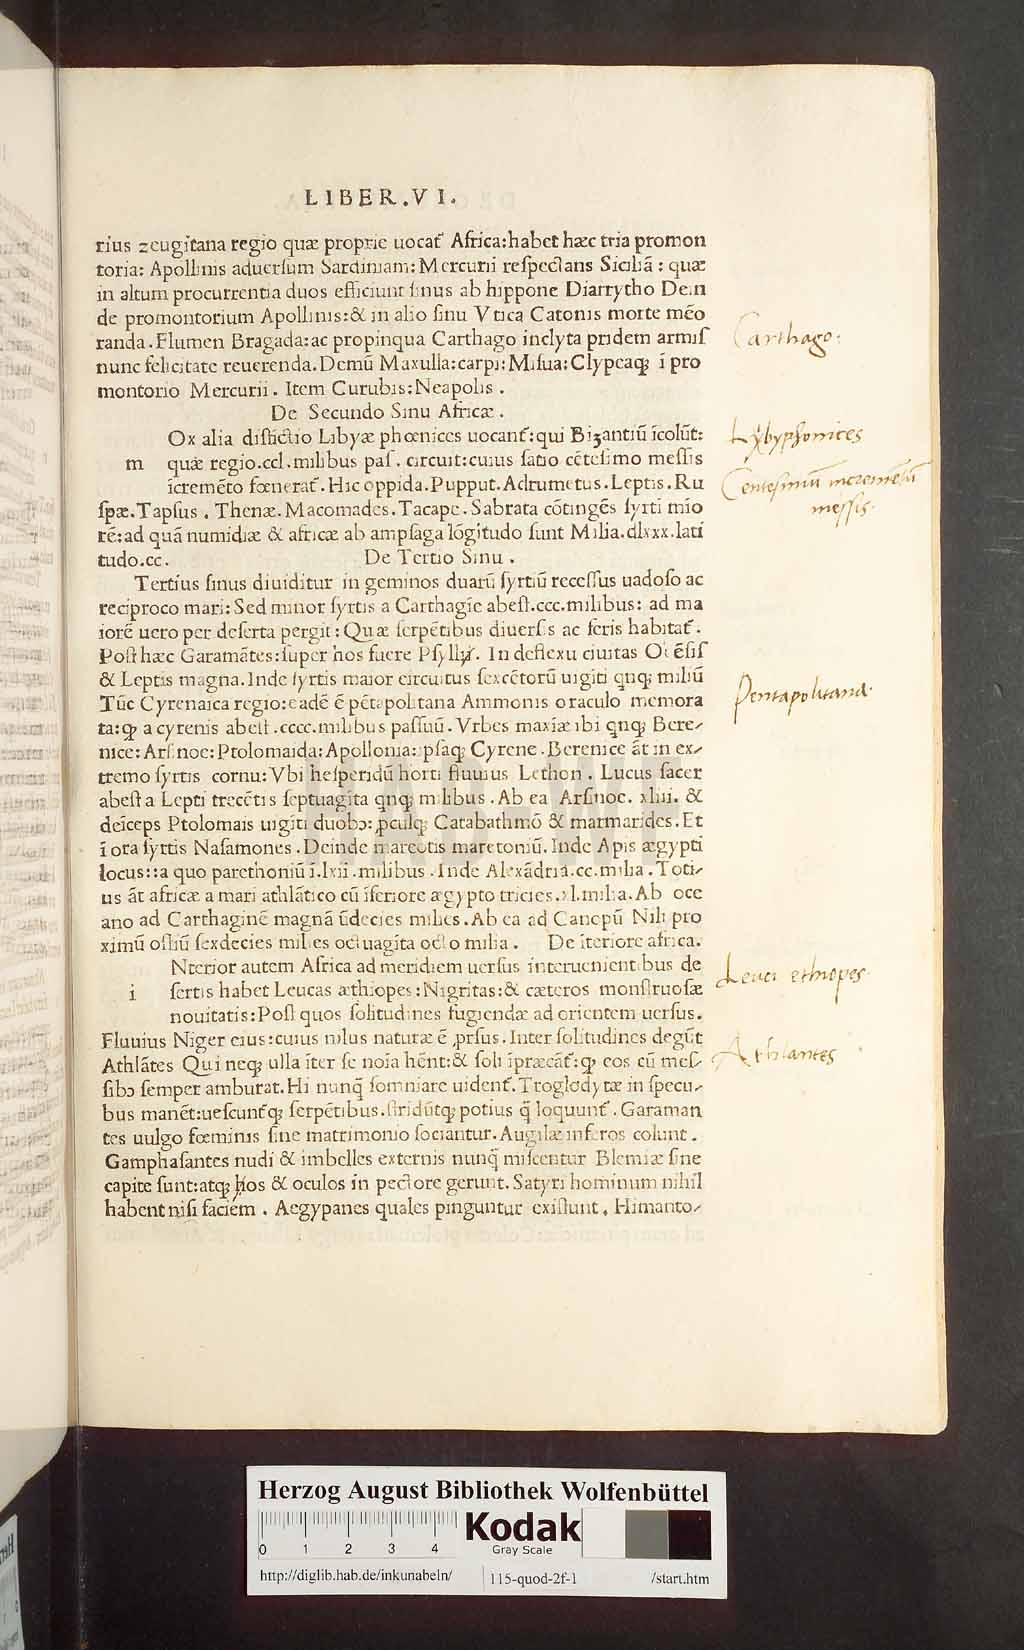 LIBER.VI.
rius zeugitana regio quæ proprie uocat᷑ Africa:habet hæc tria promon
toria: Apollinis aduerſum Sardiniam: Mercurii reſpectans Siciliã : quæ
in altum procurrentia duos efficiunt ſinus ab hippone Diarrytho Dein
de promontorium Apollinis:& in alio ſinu Vtica Catonis morte mẽo
randa.Flumen Bragada:ac propinqua Carthago inclyta pridem armiſ
nunc felicitate reuerenda.Demũ Maxulla:carpi:Miſua:Clypeaqꝫ ĩ pro
montorio Mercurii . Item Curubis:Neapolis .
Carthago.
De Secundo Sinu Africæ .
Ox alia diſtictio Libyæ phœnices uocant᷑:qui Biʒantiũ ĩcolũt:
m quæ regio.ccl.milibus paſ. circuit:cuius ſatio cẽteſimo meſſis
ĩcremẽto fœnerat᷑. Hic oppida.Pupput.Adrumetus.Leptis.Ru
ſpæ.Tapſus . Thenæ.Macomades.Tacape.Sabrata cõtingẽs ſyrti mio
rẽ:ad quã numidiæ & africæ ab ampſaga lõgitudo ſunt Milia.dlxxx.lati
tudo.cc.
Lybyphonices
Centesimũ incremẽtũ
messis.
De Tertio Sinu .
Tertius ſinus diuiditur in geminos duarũ ſyrtiũ receſſus uadoſo ac
reciproco mari: Sed minor ſyrtis a Carthagĩe abeſt.ccc.milibus: ad ma
iorẽ uero per deſerta pergit: Quæ ſerpẽtibus diuerſis ac feris habitat᷑.
Poſt hæc Garamãtes:ſuper hos fuere Pſylli. In deflexu ciuitas Oẽſiſ
& Leptis magna.Inde ſyrtis maior circuitus ſexcẽtorũ uigĩti qnqꝫ miliũ
Tũc Cyrenaica regio:eadẽ ẽ pẽtapolitana Ammonis oraculo memora
ta:qꝫ a cyrenis abeſt .cccc.milibus paſſuũ. Vrbes maxiæ ibi qnqꝫ Bere-
nice:Arſinoe:Ptolomaida:Apollonia:ipſaqꝫ Cyrene.Berenice ãt in ex-
tremo ſyrtis cornu:Vbi heſperidũ horti fluuius Lethon . Lucus ſacer
abeſt a Lepti trecẽtis ſeptuagĩta qnqꝫ milibus . Ab ea Arſinoe. xliii. &
deĩceps Ptolomais uigĩti duobɔ: ꝓculqꝫ Catabathmõ & marmarides.Et
ĩ ora ſyrtis Naſamones . Deinde mareotis maretoniũ. Inde Apis ægypti
locus::a quo parethoniũ ĩ.lxii .milibus .Inde Alexãdria.cc.milia . Toti-
us ãt africæ a mari athlãtico cũ ĩferiore ægypto tricies.xl.milia. Ab oce
ano ad Carthaginẽ magnã ũdecies milies.Ab ea ad Canopũ Nili pro
ximũ oſtiũ ſexdecies milies octuagĩta octo milia .
Pentapolitana.
De ĩteriore africa.
Nterior autem Africa ad meridiem uerſus interuenientibus de
i ſertis habet Leucas æthiopes:Nigritas:& cæteros monſtruoſæ
nouitatis:Poſt quos ſolitudines fugiendæ ad orientem uerſus.
Fluuius Niger eius:cuius nilus naturæ ẽ ꝓrſus. Inter ſolitudines degũt
Athlãtes Qui neqꝫ ulla iter ſe noĩa hẽnt:& ſoli ĩpræcãt᷑:qꝫ eos cũ meſ-
ſibɔ ſemper amburat.Hi nunq̃ ſomniare uident᷑.Troglodytæ in ſpecu-
bus manẽt:ueſcunt᷑qꝫ ſerpẽtibus.ſtridũtqꝫ potius q̃ loquunt᷑. Garaman
tes uulgo fœminis ſine matrimonio ſociantur.Augilæ inferos colunt .
Gamphaſantes nudi & imbelles externis nunq̃ miſcentur Blemiæ ſine
capite ſunt:atqꝫ hos & oculos in pectore gerunt.Satyri hominum nihil
habent niſi faciem . Aegypanes quales pinguntur exiſtunt. Himanto-
Leuci ethiopes.
Athlantes
HAB-WF
Herzog August Bibliothek Wolfenbüttel
0 1 2 3 4 Kodak
Gray Scale
http://diglib.hab.de/inkunabeln/ 115-quod-2f-1 /start.htm